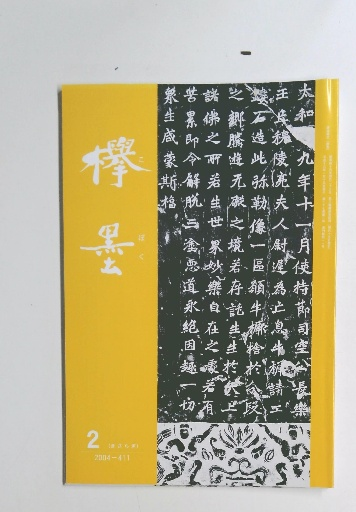 欅墨
ぼく
太和十九年十一月使持節司空公長樂
王丘穆陵亮夫人尉遲為亡息牛橛請工
鏤石造此弥勒像一區願牛橛捨於分段
之鄉騰遊无礙之境若存託生生於天上
諸佛之所若生世界妙樂自在之處若有
苦累即令解脫三塗惡道永絕因趣一切
衆生咸蒙斯福
2
2004-411